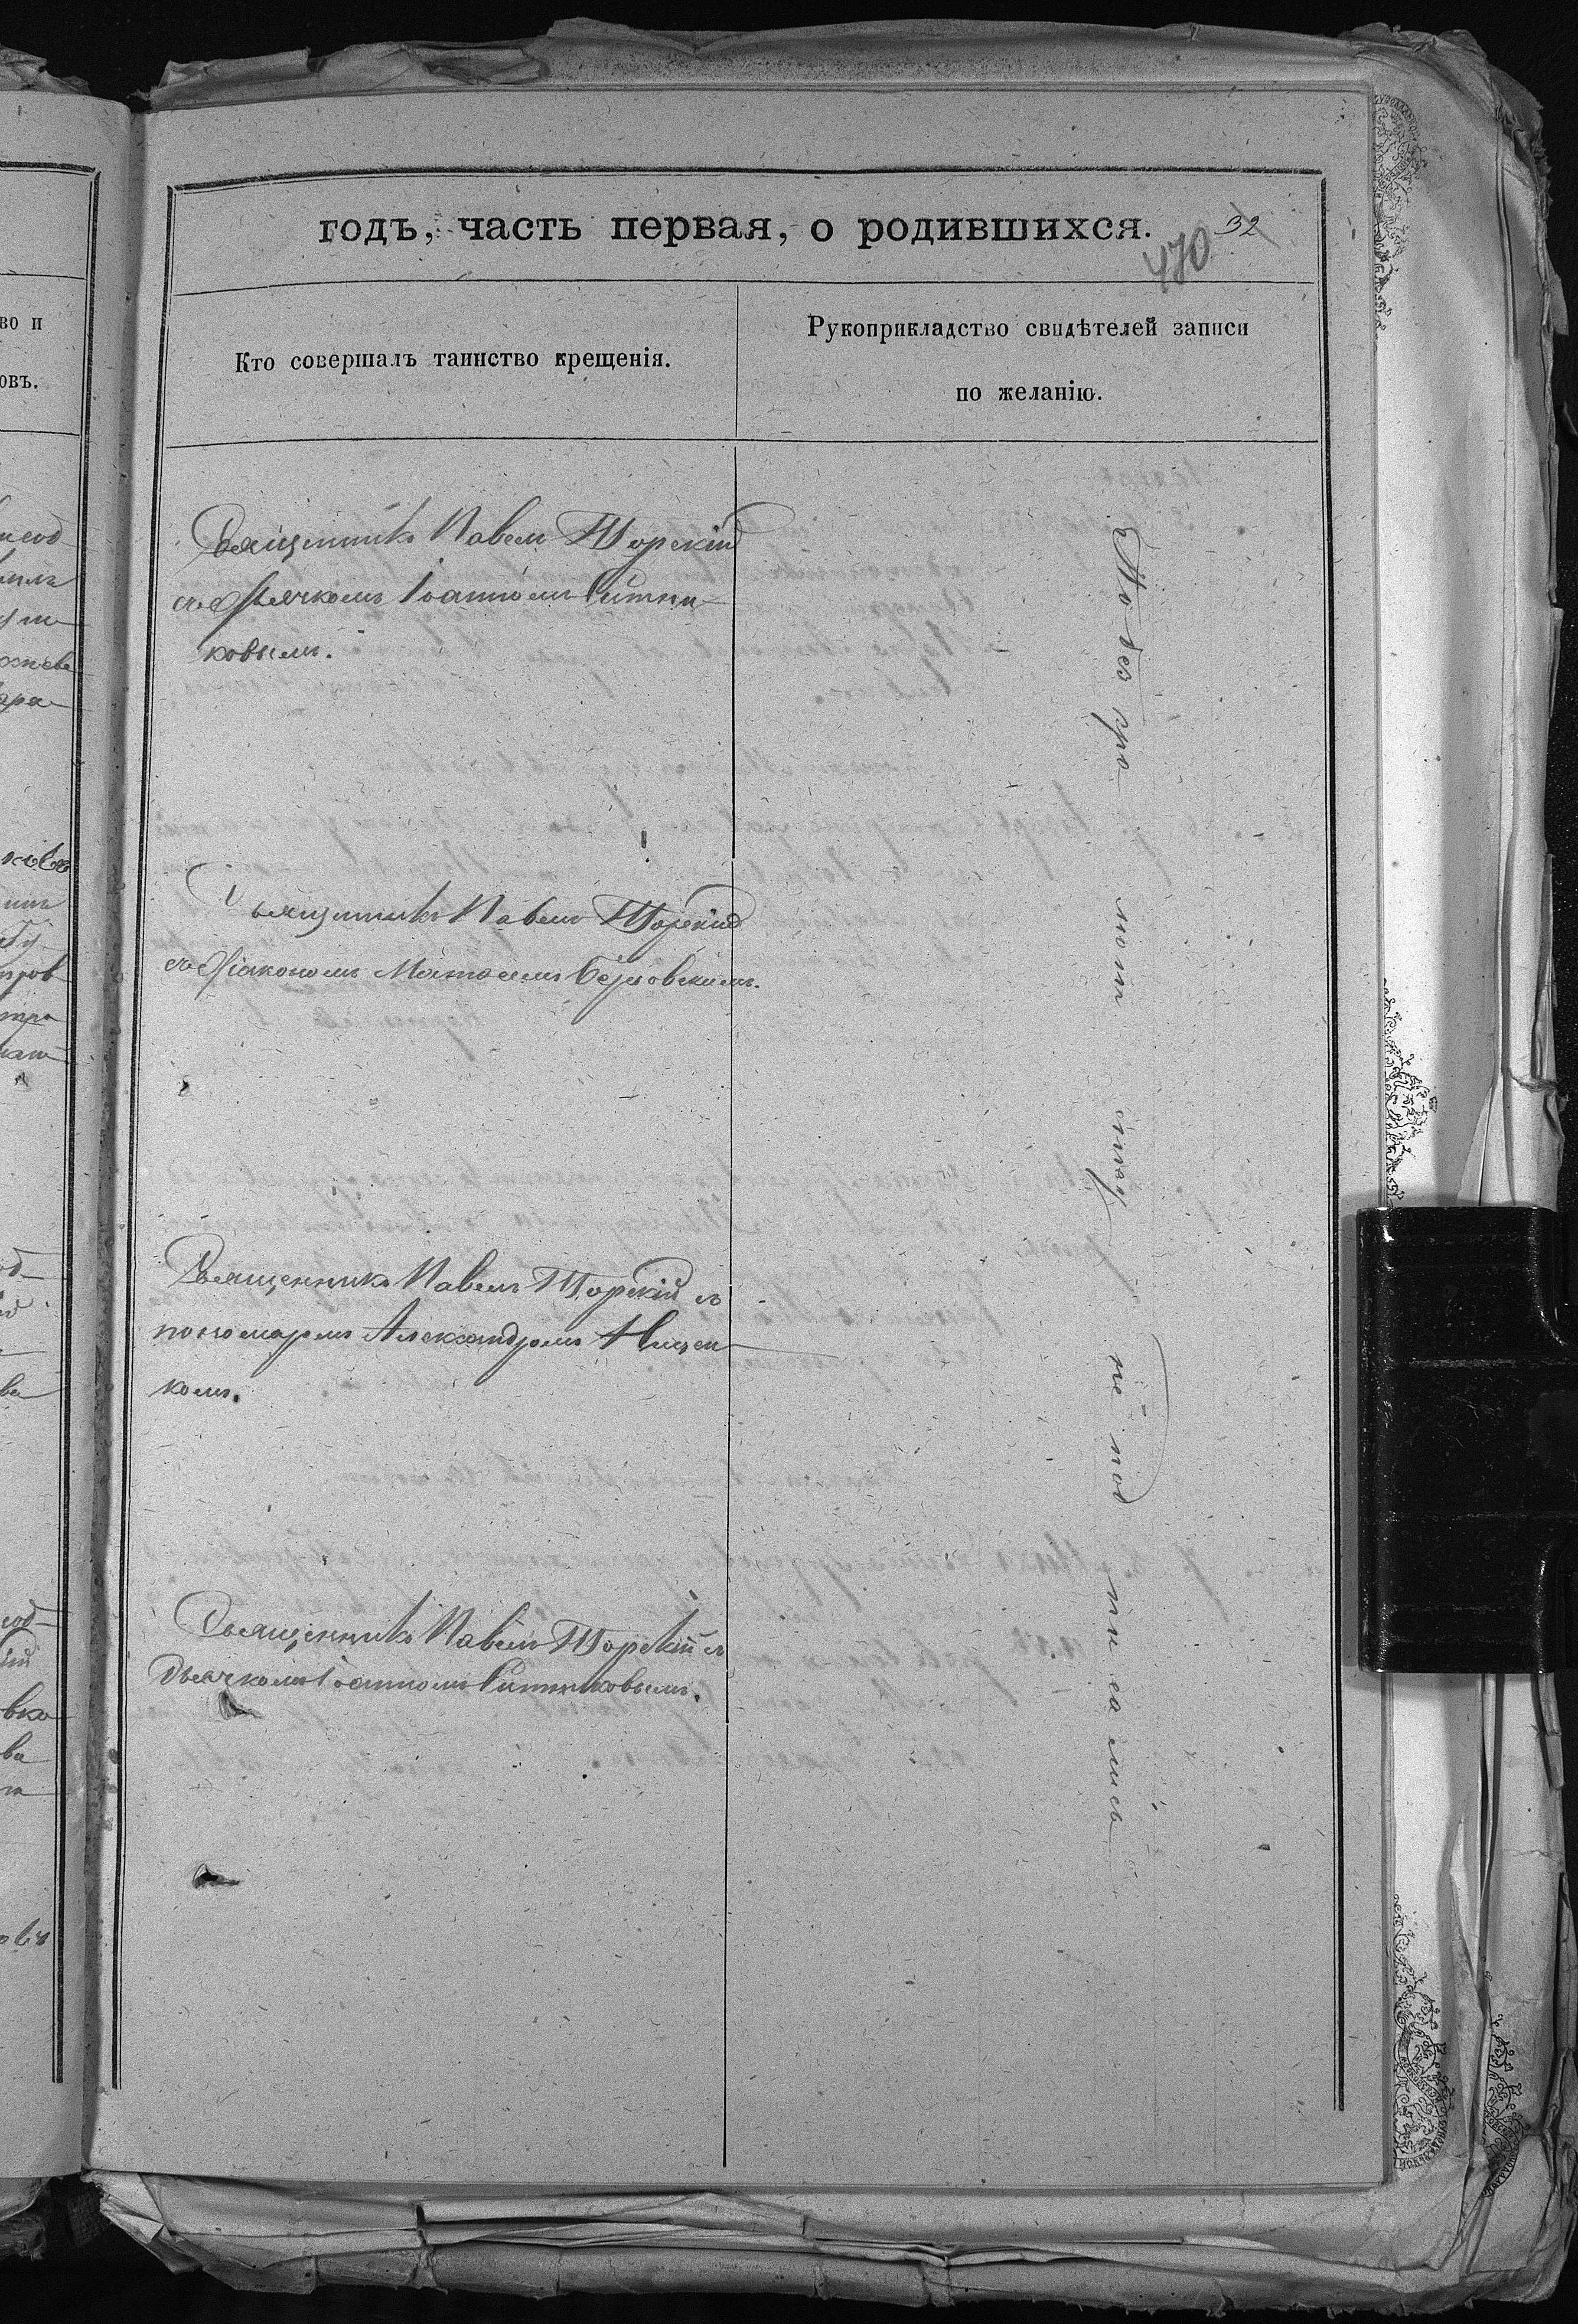 годъ, часть первая, о родившихся.
32
470
Кто совершалъ таинство крещенія.
Рукоприкладство свидѣтелей записи
по желанію.
Священникъ Павелъ Торскій
съ Дьячкомъ Іоанномъ Ситни-
ковымъ.
Священникъ Павелъ Торскій
съ Діакономъ
Священникъ Павелъ Торскій съ
пономаремъ Александромъ
комъ.
Священникъ Павелъ Торскій съ
дьячкомъ Іоанномъ Ситниковымъ.
По без гра мот ству не под пи са лись